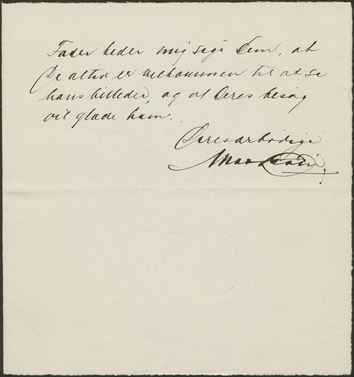 Fader beder mig sige Dem, at
De altid er velkommen til at se
hans billeder, og at Deres besøg
vil glæde ham.
Deres ærbødige